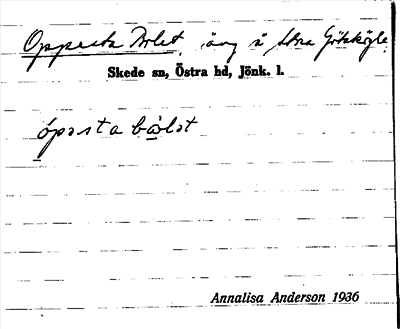 Oppesta Bolet, äng å Stora Götskögle
Skede sn, Östra hd, Jönk. l.
ópɘsta bơlɘt
Annalisa Anderson 1936